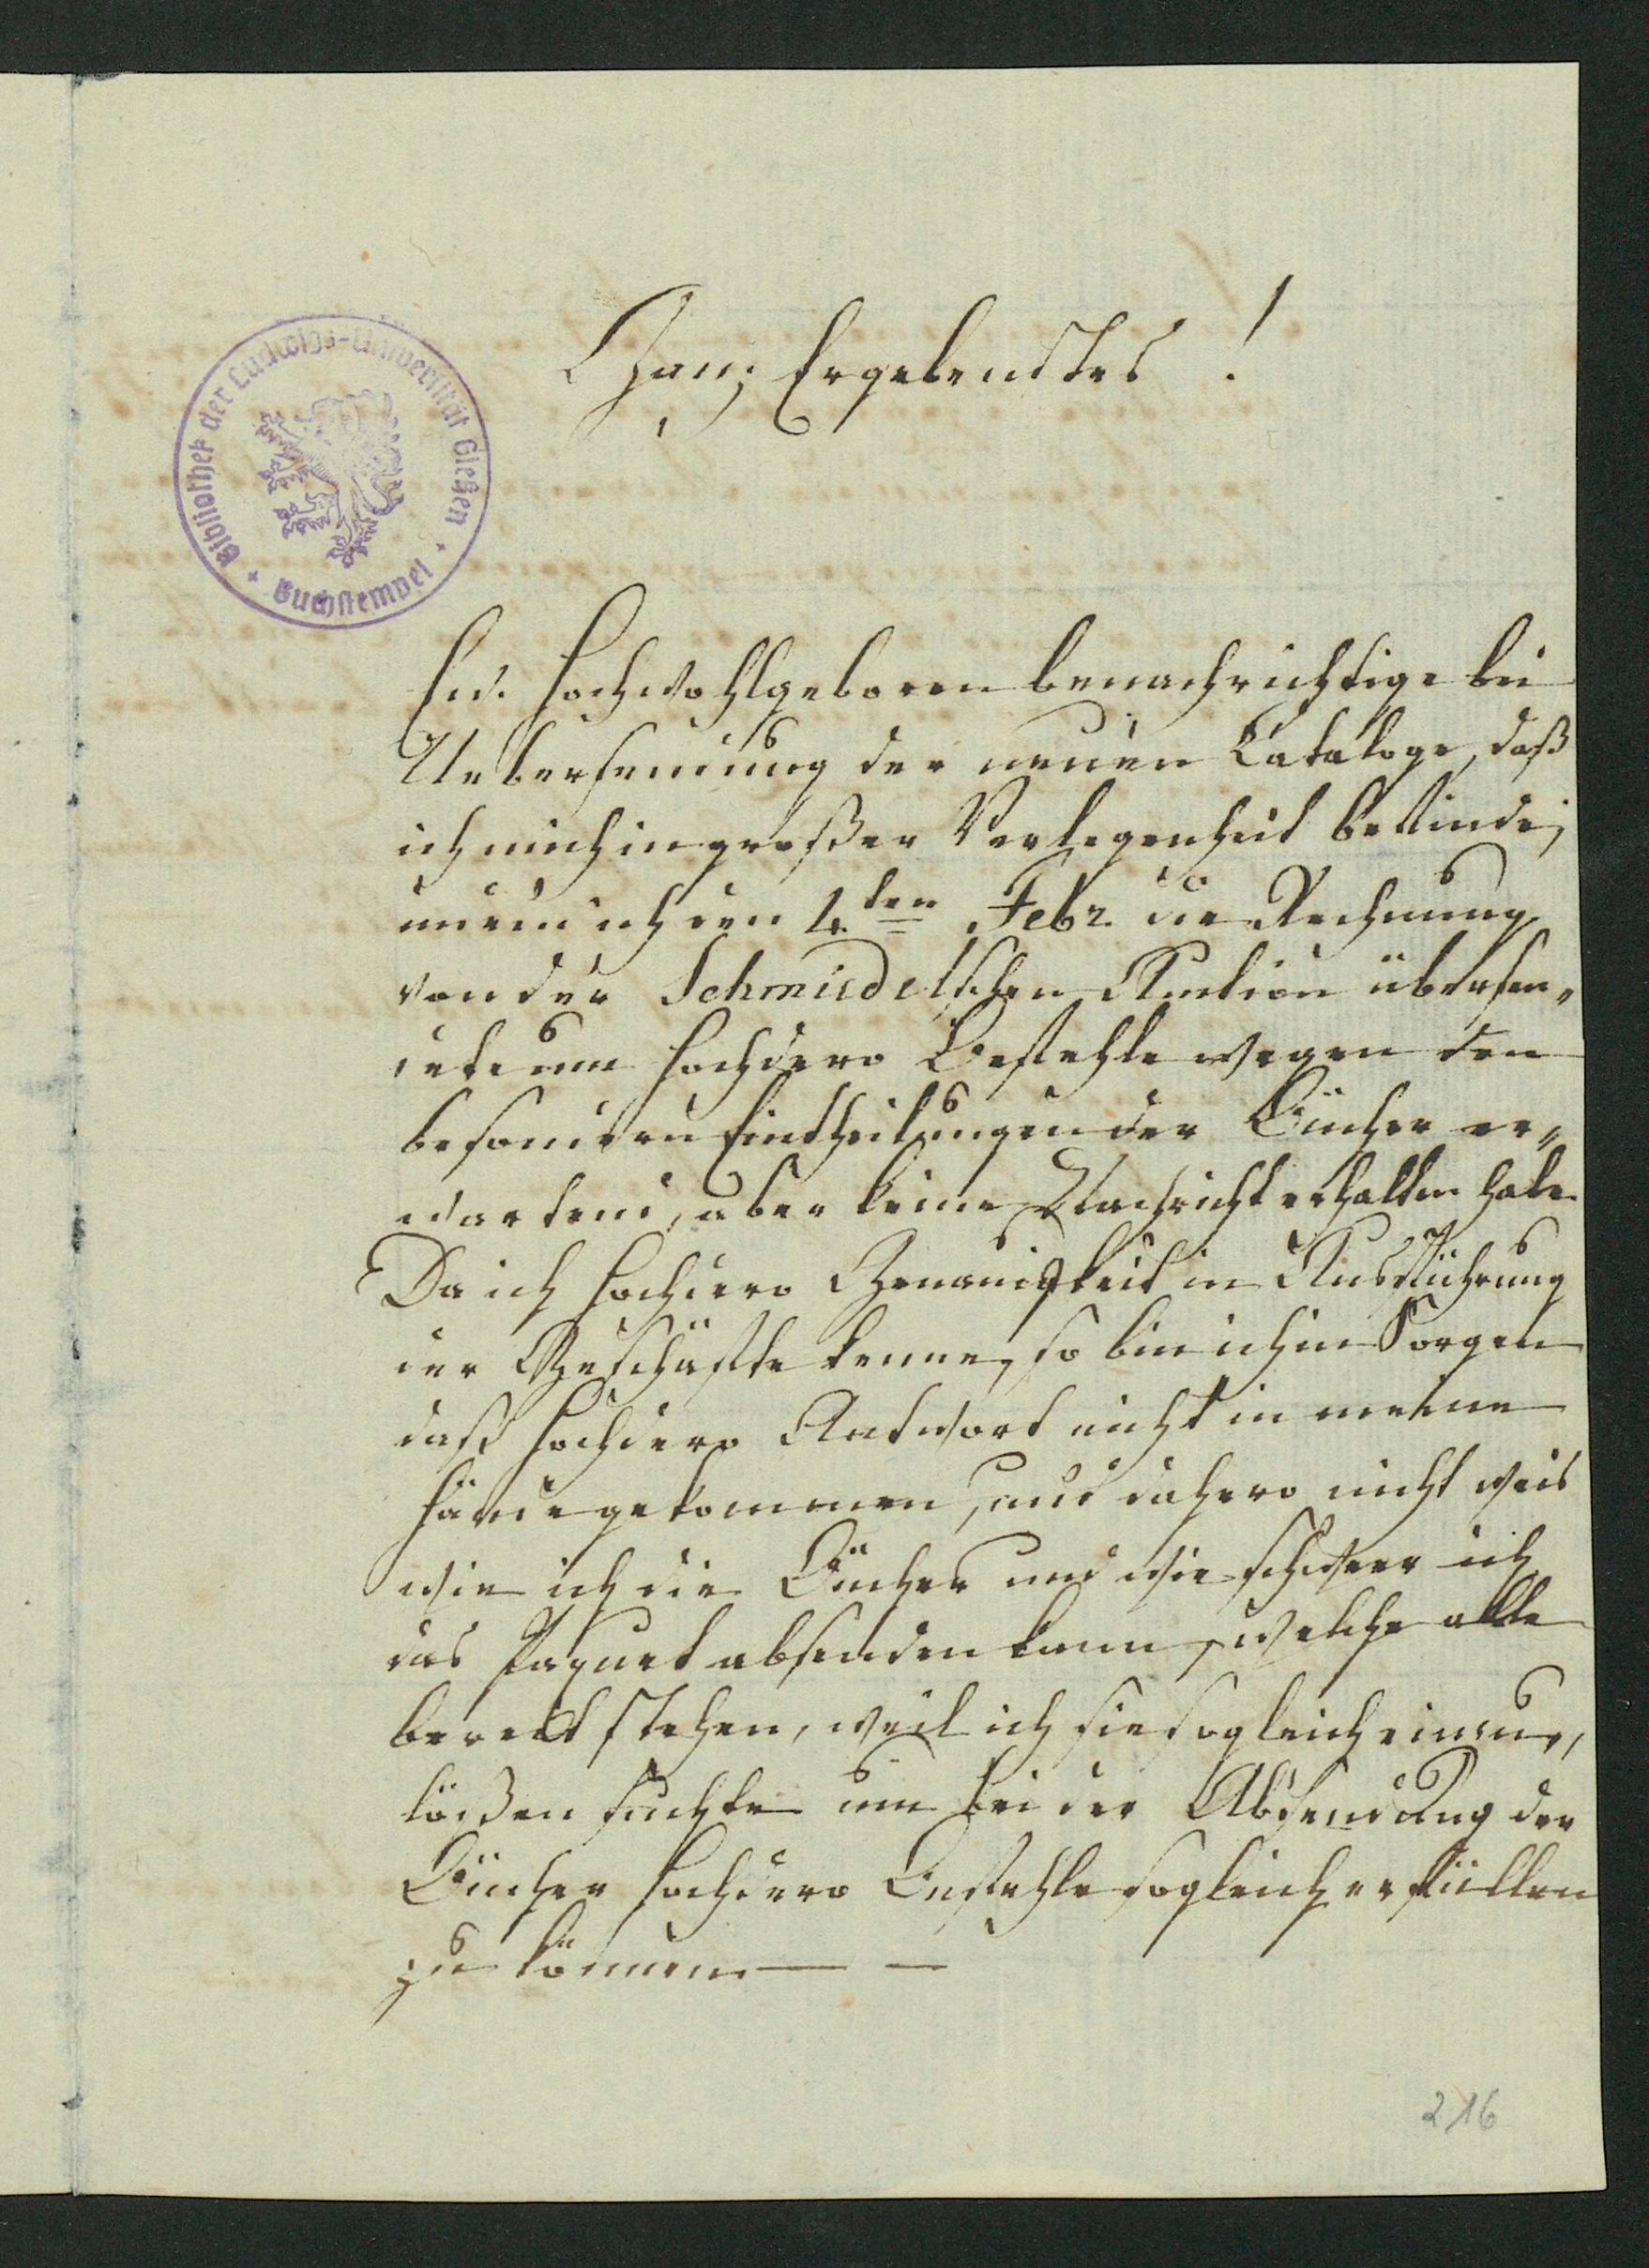 Ganz Ergebenstes!
Bibliothek der Ludwigs-Universität Gießen
Buchstempel
Ew. Hochwohlgeboren benachrichtige bei
Uebersendung der neuen Cataloge, daß
ich mich in großer Verlegenheit befinde,
indem ich den 4ten Febr. die Rechnung
von der Schmiedelschen Auction übersen-
dete um Hochdero Befehle wegen den
besondern Eintheilungen der Bücher er-
wartend, aber keine Nachricht erhalten habe
Da ich Hochdero Genauigkeit in Ausführung
der Geschäfte kenne, so bin ich in Sorgen
daß Hochdero Antwort nicht in meine
Hände gekommen, und dahero nicht weis
wie ich die Bücher und wie schwer ich
das Paquet absenden kann, welche alle
bereit stehen, weil ich sie sogleich einzu-
lößen suchte um bei der Absendung der
Bücher Hochdero Befehle sogleich erfüllen
zu können — —
216